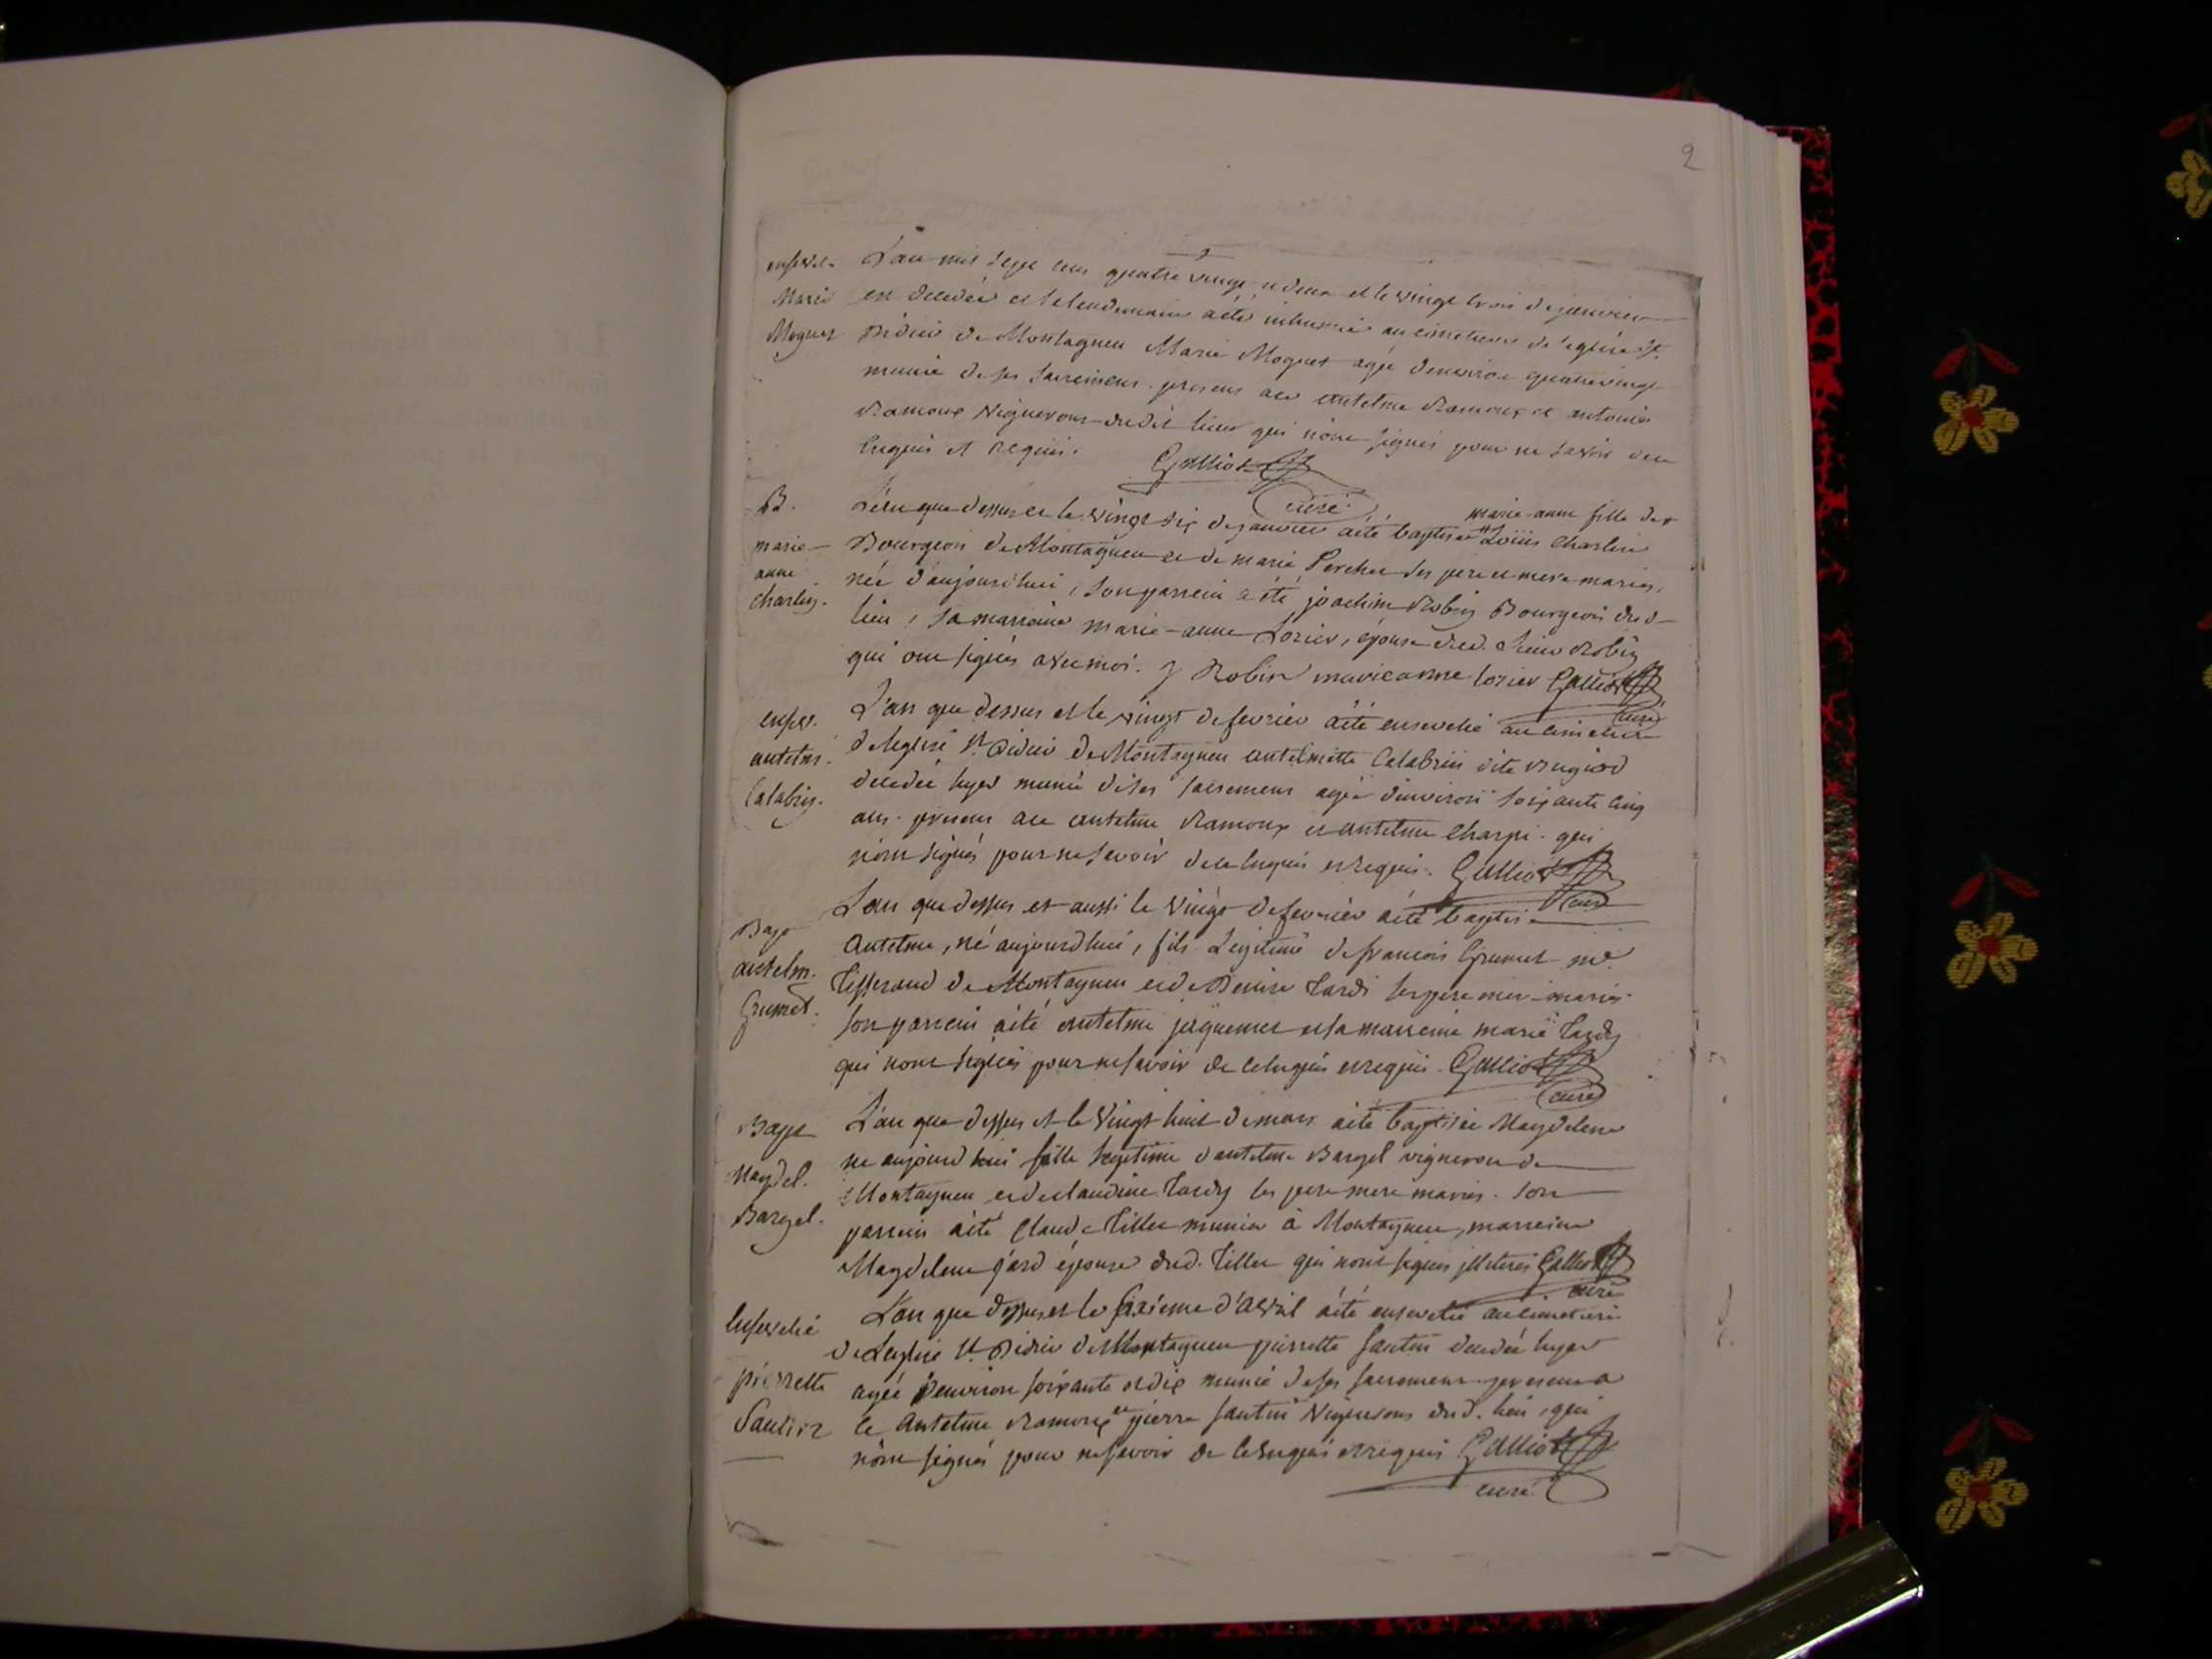 2
ensevel. L'an mil sept cens quatre vingt et deux et le vingt trois de janvier
Marie est decedée et le lendemain a été inhumée au cimetiere de l'eglise St.
Moguet Didier de Montagneu Marie Moguet agée d'environ quatrevingt
munie de ses sacremens. presens ace antelme Ramoux et antoine
Ramoux Vignerons dudit lieu qui n'ont signés pour ne savoir de ce
enquis et requis. Galliot
curé
B. L'an que dessus et le vingt six de janvier a été baptisée marie-anne fille de Louis Charlin
marie- Bourgeois de Montagneu et de marie Percher ses pere et mere mariés,
anne née d'aujourd'hui, son parrein a été joachim Robin Bourgeois dud
Charlin. lieu, sa marraine marie-anne Lorier, épouse dud. sieur Robin
qui ont signés avec moi. J Robin marie anne lorier Galliot
curé
ensev. L'an que dessus et le vingt de fevrier a été ensevelie au cimetiere
antelm. de leglise St. Didier de Montagneu antelmette Calabrin dite
Calabrin. decedée hyer munie de ses sacremens agée d'environ soixante cinq
ans. presens ace antelme Ramoux et antelme Charpi. qui
n'ont signés pour ne savoir de ce enquis et requis. Galliot
curé
Bap L'an que dessus et aussi le vingt de fevrier a été baptisé
antelm. Antelme, né aujourdhui, fils Legitime de francois Grumet me.
Grumet. Tisserand de Montagneu et de Denise Tardi ses pere mere mariés.
son parrein a été antelme jaquemet et sa marreine marie Tardy
qui n'ont signés pour ne savoir de ce enquis et requis. Galliot
curé
Bapt L'an que dessus et le vingt huit de mars a été baptisée Magdelene
Magdel. née aujourdhui fille legitime d'antelme Bargel vigneron de
Bargel. Montagneu et de claudine Tardy ses pere mere mariés. son
parrein a été Claude Tillet munier à Montagneu, marreine
Magdelene épouse dud. Tillet qui n'ont signés illiterés Galliot
curé
Ensevelie L'an que dessus et le sixieme d'avril a été ensevelie au cimetiere
de Leglise St. Didier de Montagneu pierrette Santin decedée hyer
pierrette agée d'environ soixante et dix munie de ses sacremens. presens a
Santin ce Antelme Ramoux et pierre Santin Vignerons dud. lieu, qui
n'ont signés pour ne savoir de ce enquis et requis Galliot
curé